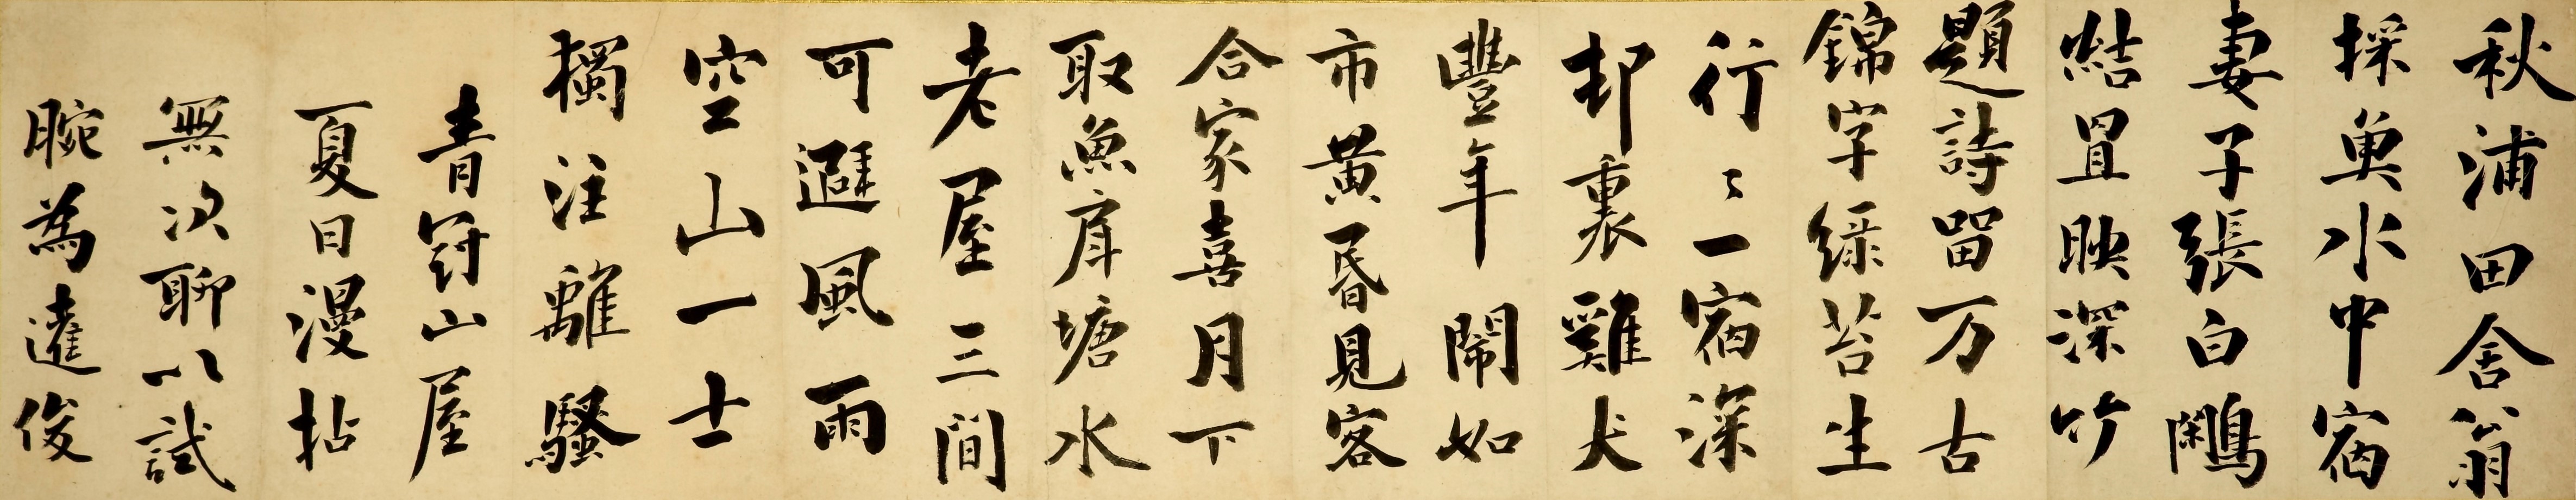 秋浦田舍翁
採魚水中宿
妻子張白鷴
結罝映深竹
題詩留万古
錦字綠苔生
行〻一宿深
邨裏雞犬
豐年鬧如
市黃昏見客
合家喜月下
取魚戽塘水
老屋三間
可避風雨
空山一士
獨注離騷
青窬山屋
夏日漫拈
無次聊以試
腕為達俊